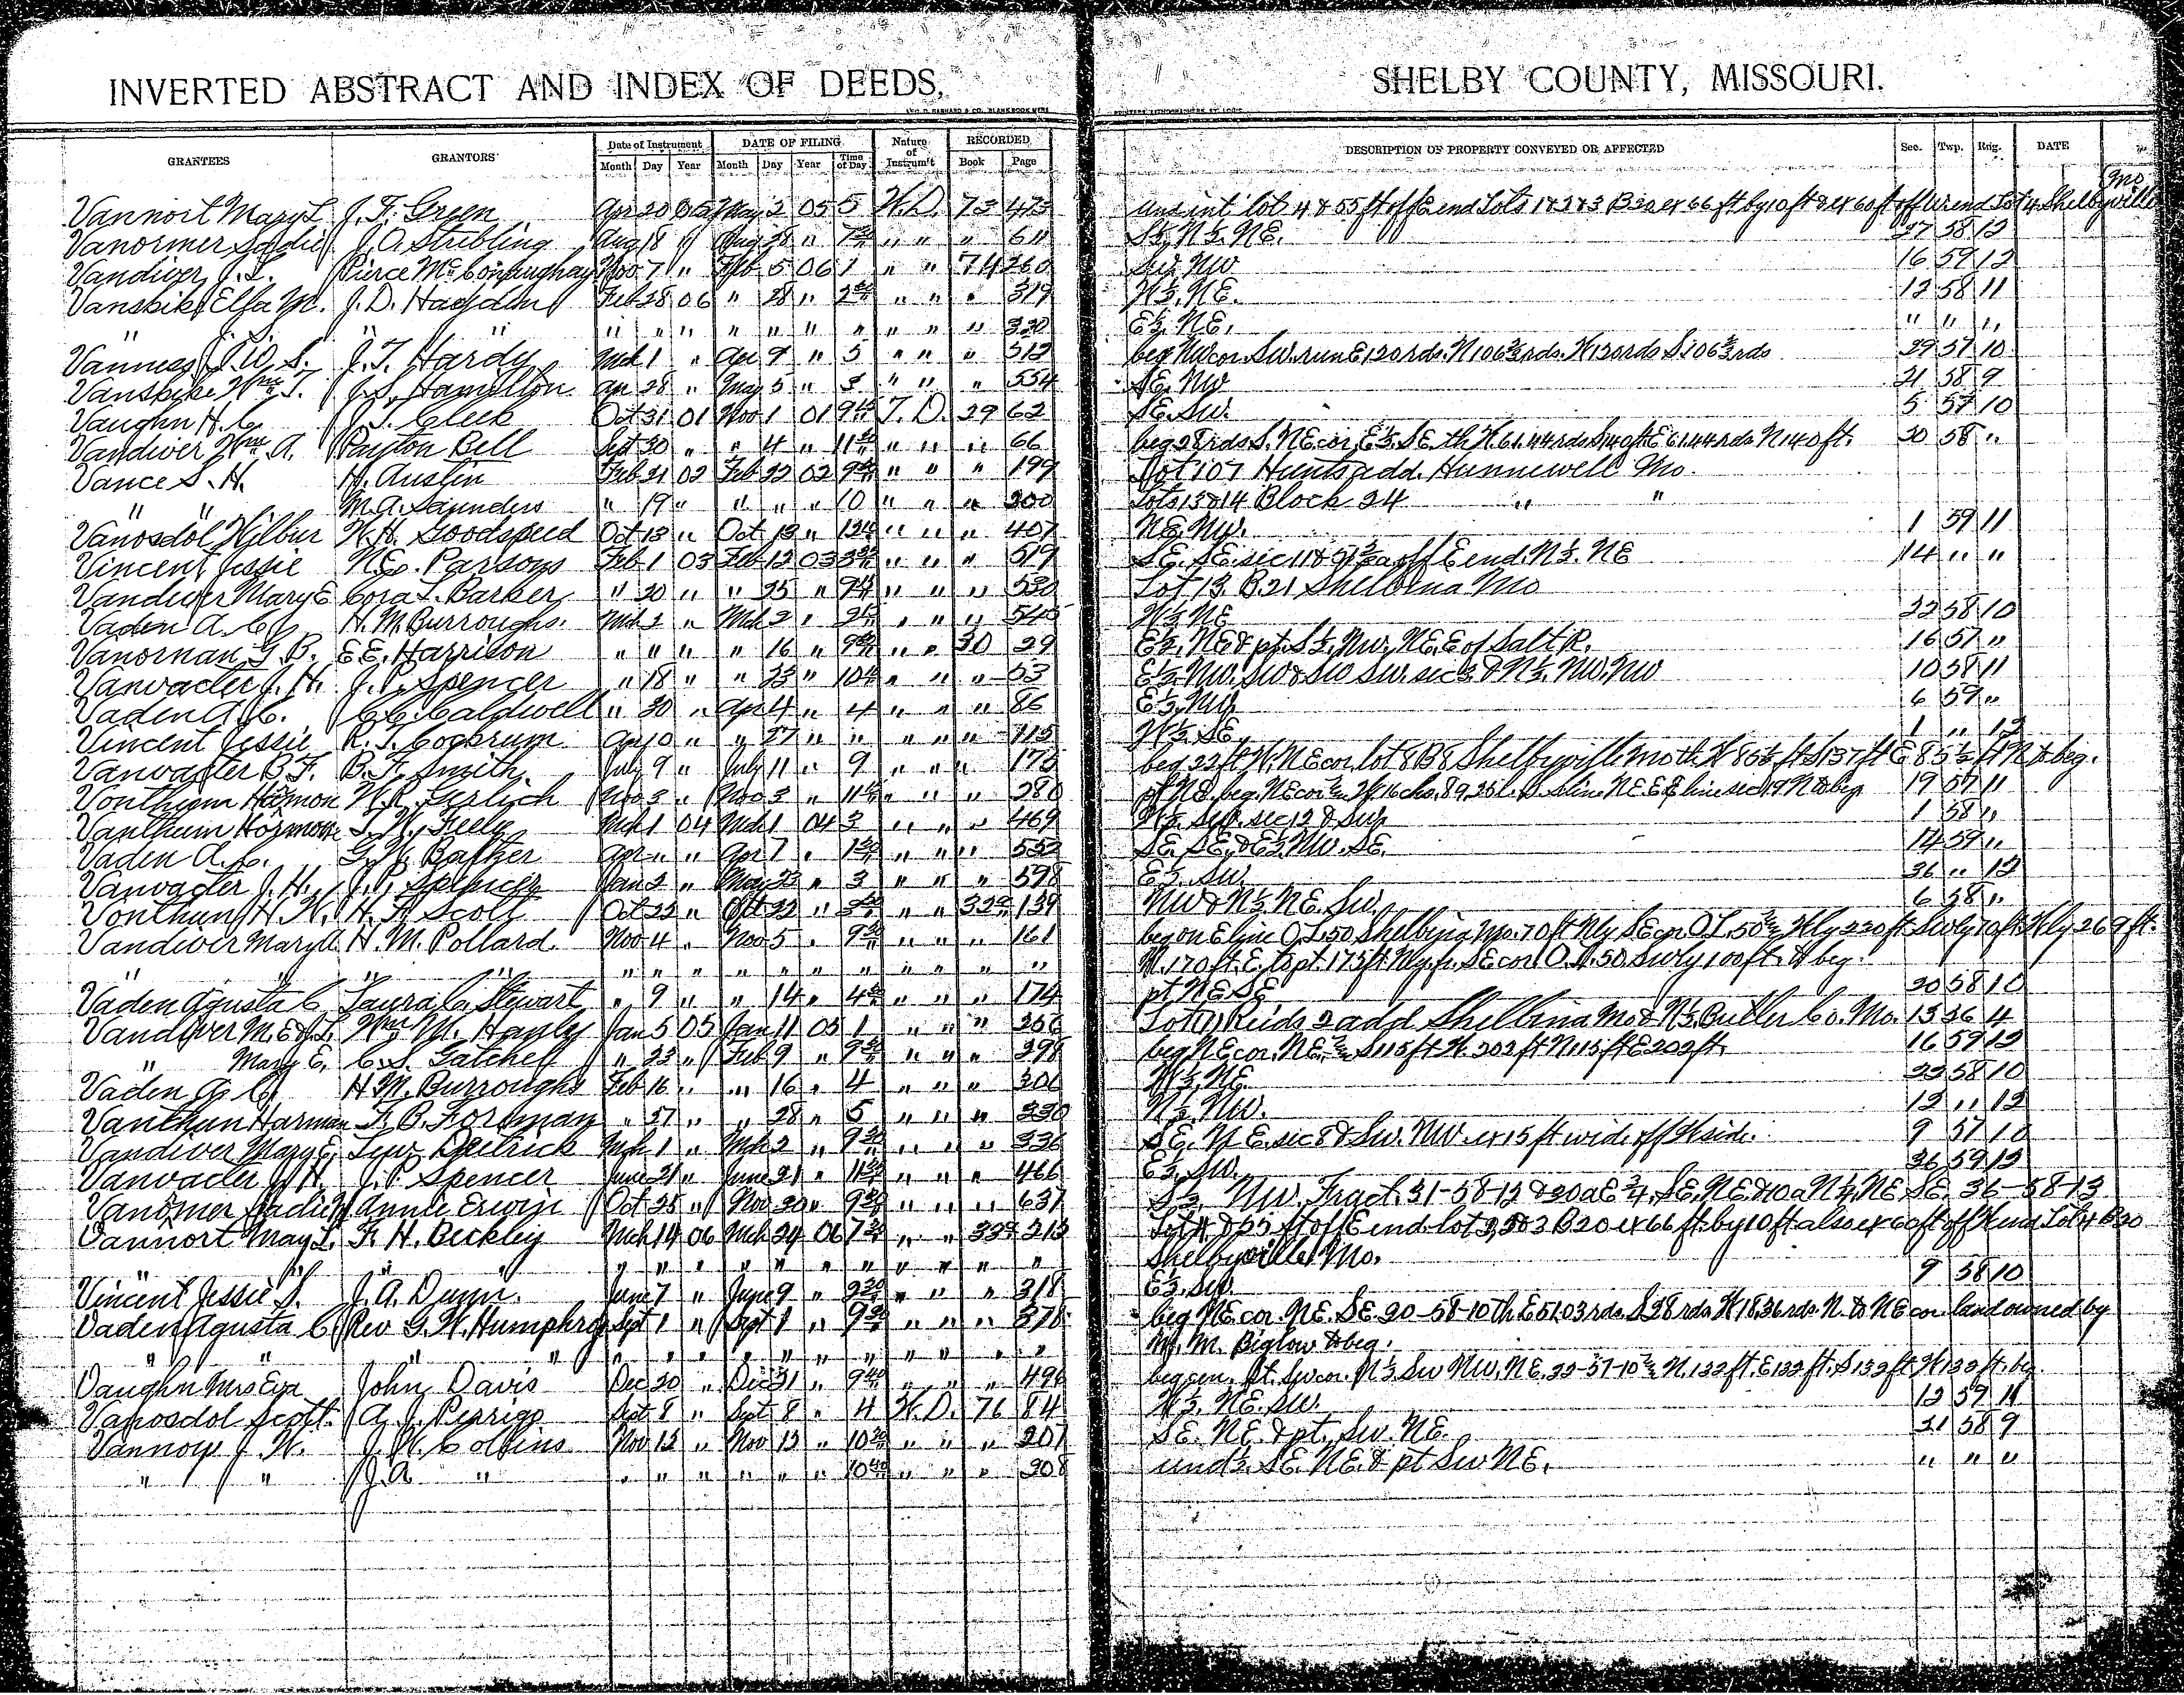 INVERTED ABSTRACT AND INDEX OF DEEDS, SHELBY COUNTY, MISSOURI.
GRANTEES GRANTORS Date of Instrument DATE OF FILING Nature of Instrum't RECORDED DESCRIPTION OF PROPERTY CONVEYED OR AFFECTED Sec. Twp. Rng. DATE
Month Day Year Month Day Year Time of Day Book Page
Mo
Vannort Mary L J. F. Green Apr 20 05 May 2 05 5 W.D. 73 473 und int lot 4 & 55 ft off E end Lots 1 & 2 & 3 B 20 ex 66 ft by 10 ft & ex 60 ft off W end Lot 4 Shelbyville
Vanormer Sadie J. O. Stribling Aug 18 " Aug 28 " 7 " " " 611 S½ N½ NE. 27 58 12
Vandiver J. L. Pierce McConnughay Nov 7 " Feb 5 06 1 " " 74 260 SW. NW 16 59 12
Vanskike Elfa M. J. D. Hayden Feb 28 06 " 28 " 2 " " " 319 W½ NE. 12 58 11
" J. S. " " " " " " " " " " " " 320 E½ NE. " " "
Vanness J. W. S. J. T. Hardy Mch 1 " Apr 9 " 5 " " " 512 beg NW cor. SW. run E 120 rds. N 106⅔ rds. W 120 rds S 106⅔ rds 29 57 10
Vanskike Wm. T. J. S. Hamilton Apr 28 " May 5 " 3 " " " 554 SE. NW 21 58 9
Vaughn H. C. J. T. Cleek Oct 31 01 Nov 1 01 9 T. D. 29 62 SE. SW. 5 57 10
Vandiver Wm. A. Payton Bell Sept 30 " " 4 " 11 " " " 66 beg 28 rds S. NE cor. E½ SE th W 61.44 rds S 140 ft E 61.44 rds N 140 ft. 30 58 "
Vance S. H. H. Austin Feb 21 02 Feb 22 02 9 " " " 199 Lot 107 Hunts add. Hunnewell Mo.
" " M. A. Saunders " 19 " " " " 10 " " " 200 Lots 13 & 14 Block 24 " "
Vanosdol Wilbur W. H. Goodspeed Oct 13 " Oct 13 " " " " 407 NE. NW. 1 59 11
Vincent Jessie N. E. Parsons Feb 1 03 Feb 12 03 3 " " " 519 SE. SE. sec 11 & off E end. N½ NE 14 " "
Vandiver Mary E Cora L. Barker " 20 " " 25 " " " " 530 Lot 13. B. 21 Shelbina Mo
Vaden A. C. H. M. Burroughs. Mch 2 " Mch 2 " 2 " " " 545 W½ NE 22 58 10
Vanornan G. B. E. E. Harrison " " " " 16 " 9 " " 30 29 E½ NE & pt. S½ NW. NE. E of Salt R. 16 57 "
Vanvacter J. H. J. P. Spencer " 18 " " 23 " 10 " " " 53 E½ NW. SW & SW SW. sec 3 & N½ NW. NW 10 58 11
Vaden A. C. C. C. Caldwell " 30 " Apr 4 " 4 " " " 86 E½ NW 6 59 "
Vincent Jessie R. T. Cockrum Apr 10 " " 27 " " " " " 115 W½ SE. 1 " 12
Vanvacter B. F. B. F. Smith. July 9 " July 11 " 9 " " " 175 beg 22 ft W. NE cor. lot 8 B 8 Shelbyville Mo th W 85½ ft S 137 ft E 85½ ft N to beg.
Vonthun Harmon W. R. Gerlich Nov 3 " Nov 3 " 11 " " " 280 pt NE. beg. NE cor 19 57 11
Vanthun Harmon T. W. Feely Mch 1 04 Mch 1 04 3 " " " 469 W½ SW. sec 12 & SW 1 58 "
Vaden A. C. G. W. Barker Apr " " Apr 7 " 1 " " " 552 SE. SE. & E½ NW. SE. 14 59 "
Vanvacter J. H. J. P. Spencer Jan 2 " May 23 " 3 " " " 598 E½ SW. 36 " 12
Vonthun H. W. H. F. Scott Oct 22 " Oct 22 " 3 " " 32 139 NW & N½ NE. SW. 6 58 "
Vandiver Mary E. H. M. Pollard Nov 4 " Nov 5 " 9 " " " 161 beg on E line O. L. 50 Shelbina Mo. 70 ft Nly SE cor O. L. 50 Wly 220 ft. Swly 70 ft. Wly 269 ft.
" " " " " " " " " " " " " " " N. 170 ft. E. to pt. 175 ft Nly fr. SE cor O. L. 50 Swly 100 ft. to beg.
Vaden Agusta C Laura C. Stewart " 9 " " 14 " 4 " " " 174 pt NE SE 20 58 10
Vandiver M. E & J. L. Wm M. Hanly Jan 5 05 Jan 11 05 1 " " " 256 Lot 11 Reids 2 add Shelbina Mo & N½ Butler Co. Mo. 15 26 4
" Mary E. C. S. Gatchell " 23 " Feb 9 " 9 " " " 298 beg NE cor. NE. S 115 ft W. 202 ft N 115 ft E 202 ft. 16 59 12
Vaden A. C. H. M. Burroughs Feb 16 " " 16 " 4 " " " 306 W½ NE. 22 58 10
Vanthun Harman F. B. Forman " 27 " " 28 " 5 " " " 330 N½ NW. 12 " 12
Vandiver Mary E. Lew Deitrick Mch 1 " Mch 2 " 9 " " " 336 SE. NE. sec 8 & SW. NW ex 15 ft wide off W side. 9 57 10
Vanvacter J. H. J. P. Spencer June 21 " June 21 " 11 " " " 466 E½ SW. 36 59 12
Vanormer Sadie Annie Erwin Oct 25 " Nov 20 " 9 " " " 631 S½ NW. Fract. 31-58-12 & 30 a E¾ SE. NE. & 10 a N¼ NE SE. 36-58-13
Vannort May L. F. H. Beckley Mch 14 06 Mch 24 06 7 " " 33 213 Lot 4 & 55 ft off E end lot 1, 2 & 3 B 20 ex 66 ft. by 10 ft also ex 60 ft off W end Lot 4 B 20
" " " " " " " " " " " " " " " Shelbyville Mo.
Vincent Jessie S. J. A. Dunn. June 7 " June 9 " 9 " " " 318 E½ SW. 9 58 10
Vaden Agusta C. Rev G. W. Humphrey Sept 1 " Sept 1 " 9 " " " 378 beg NE cor. NE. SE. 20-58-10 th E 51.03 rds. S 28 rds. W 18.36 rds. N. to NE cor. land owned by
" " " " " " " " " " " " " " " M. Biglow to beg.
Vaughn Mrs Eva John Davis Dec 20 " Dec 21 " 9 " " " 496 beg cen. pt. SW cor. N½ SW NW. NE. 32-57-10 N. 132 ft. E 132 ft. S 132 ft. W 132 ft. beg
Vanosdol Scott A. J. Perrigo Sept 8 " Sept 8 " 4 W. D. 76 84 W½ NE. SW. 12 59 11
Vannoys J. W. J. W. Collins Nov 13 " Nov 13 " 10 " " " 207 SE. NE. & pt. SW. NE. 21 58 9
" " J. A. " " " " " " " 10 " " " 208 und ½ SE. NE. & pt SW NE. " " "